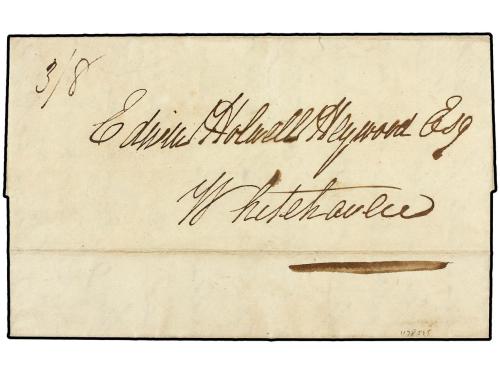 3/8
Edwin Holwell Heywood Esq
Whitehaven